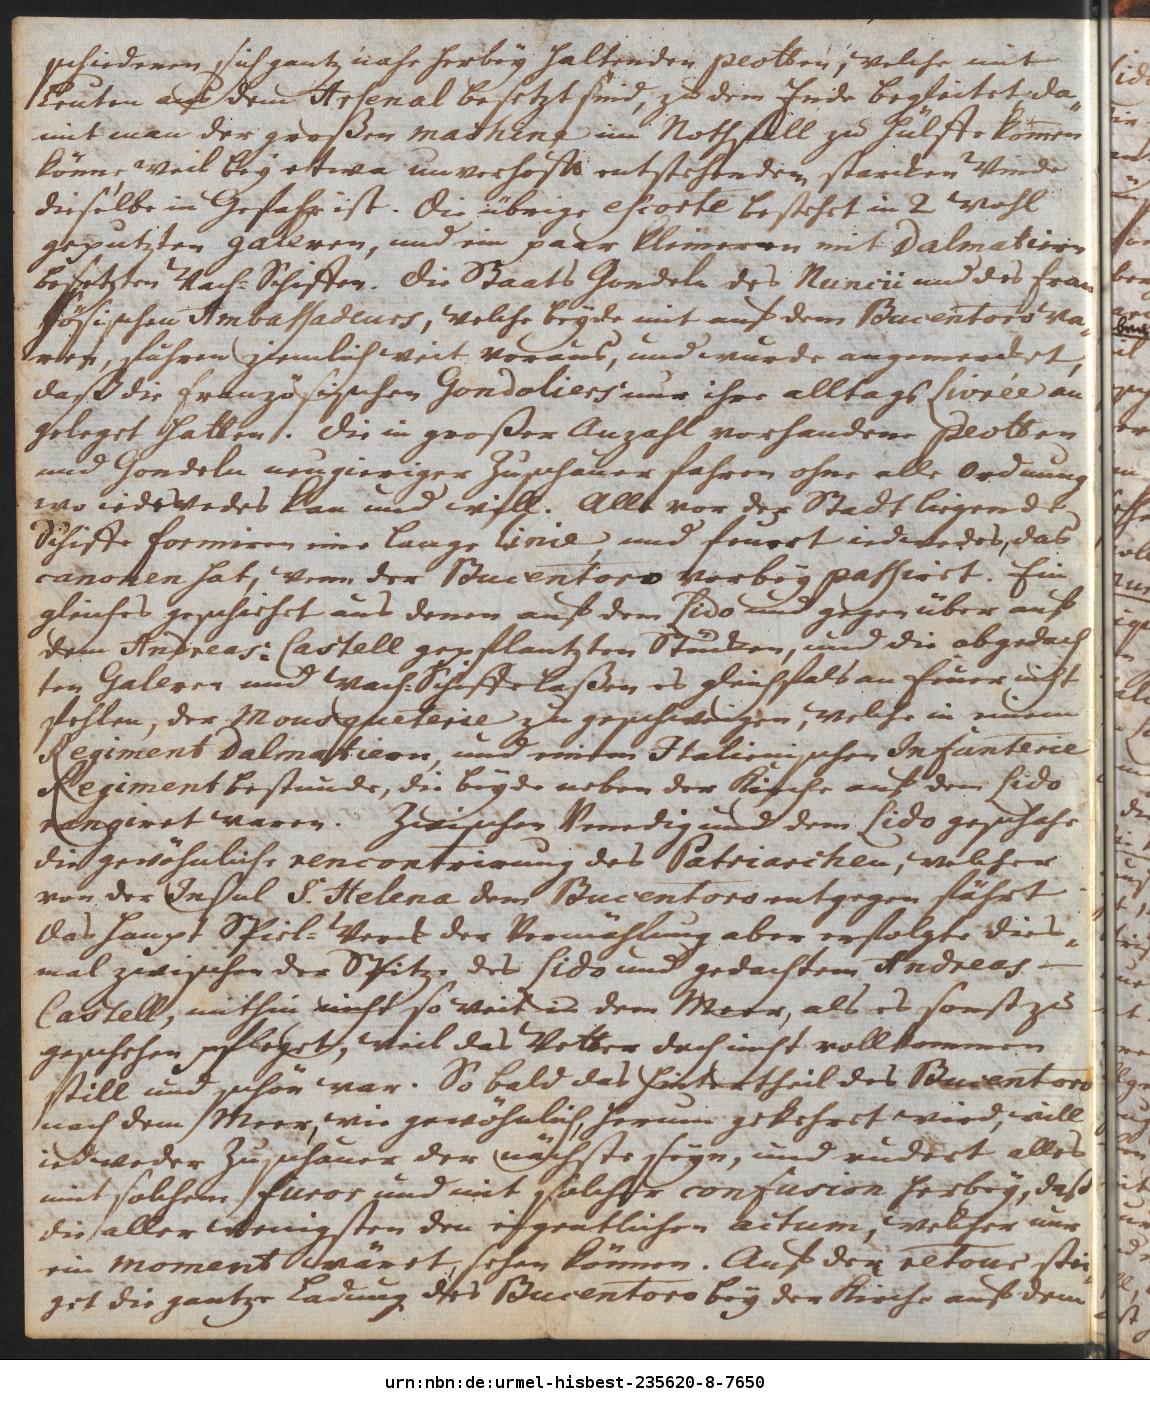 schiedenen sich gantz nahe herbey haltenden peotten, welche mit
Leuten aus dem Arsenal besetzt sind, zu dem Ende begleitet da-
mit man der großen machine im Nothfall zu Hülffe kommen
könne weil bey etwa unverhofft entstehenden starcken Winde
dieselbe in Gefahr ist. Die übrige escorte bestehet in 2 wohl
geputzten galeren, und ein paar kleineren mit Dalmatiern
besetzten Wach-Schiffen. Die Staats Gondeln des Nuncii und des Fran
zösischen Ambassadeurs, welche beyde mit auf dem Bucentoro wa-
ren, führen ziemlich weit voraus, und wurde angemercket,
daß die französischen Gondoliers nur ihre alltags Livrée an
geleget hatten. Die in großer Anzahl vorhandene peotten
und Gondeln neugieriger Zuschauer fahren ohne alle Ordnung
wo iedewedes kan und will. Alle vor der Stadt liegende
Schiffe formiren eine lange linie, und feuert iedwedes, das
canonen hat, wenn der Bucentoro vorbey passiret. Ein
gleiches geschiehet aus denen auf dem Lido und gegen über auf
dem Andreas-Castell gepflantzten Stücken, und die abgedach
ten Galeren und Wach-Schiffe laßen es gleichfals an feuer nicht
fehlen, der Mousqueterie zu geschweigen, welche in einem
Regiment Dalmatiern, und einem Italienischen Infanterie
Regiment bestunde, die beyde neben der Kirche auf dem Lido
rangiret waren. Zwischen Venedig und dem Lido geschahe
die gewöhnliche rencontrirung des Patriarchen, welcher
von der Insul S. Helena dem Bucentoro entgegen fährt
Das Haupt Spiel-Werck der Vermählung aber erfolgte dies-
mal zwischen der Spitze des Lido und gedachtem Andreas-
Castell, mithin nicht so weit in dem Meer, als es sonst zu
geschehen pfleget, weil das Wetter doch nicht vollkommen
still und schön war. So bald das Hintertheil des Bucentoro
nach dem Meer, wie gewöhnlich, herum gekehret wird, will
iedweder Zuschauer der nächste seyn, und rudert alles
mit solchem furor und mit solcher confusion herbey, daß
die aller wenigsten den eigentlichen actum, welcher nur
ein moment wäret, sehen können. Auf der retour stei-
get die gantze Ladung des Bucentoro bey der Kirche auf dem
urn:nbn:de:urmel-hisbest-235620-8-7650